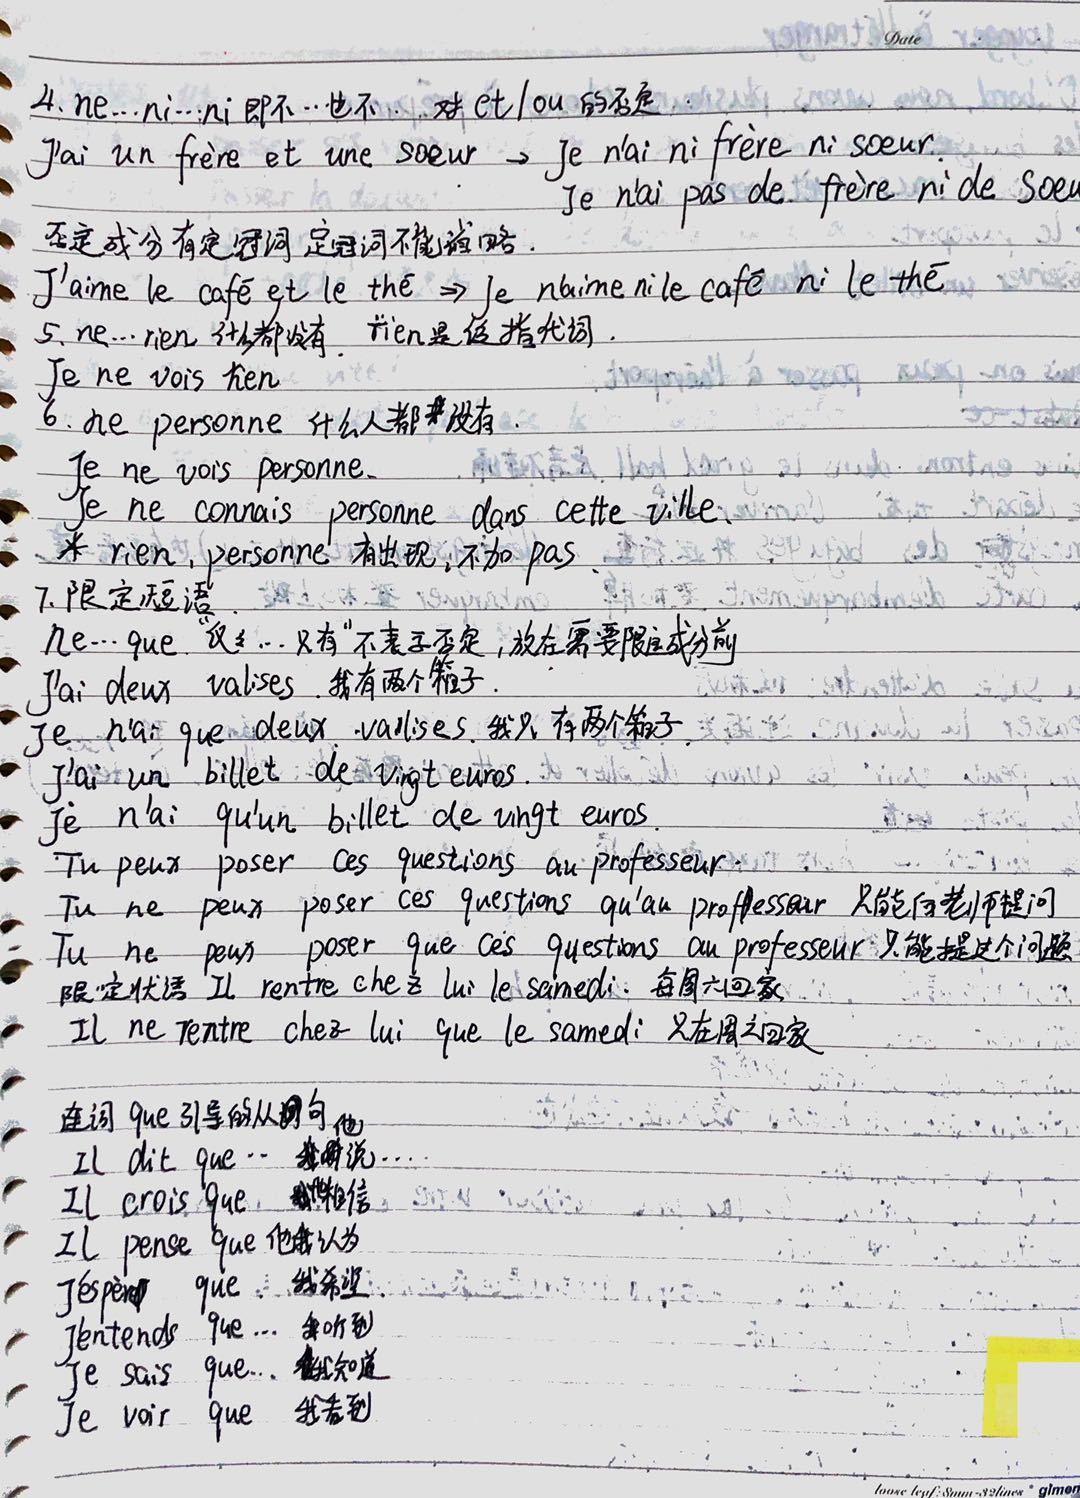 Date
4. ne...ni...ni 即不...也不... 对 et/ou 的否定
J'ai un frère et une soeur → Je n'ai ni frère ni soeur.
Je n'ai pas de frère ni de soeu
否定成分有定冠词 定冠词不能省略.
J'aime le café et le thé ⇒ Je n'aime ni le café ni le thé
5. ne...rien 什么都没有. rien是泛指代词.
Je ne vois rien
6. ne personne 什么人都没有.
Je ne vois personne.
Je ne connais personne dans cette ville.
* rien, personne 有出现,不加 pas.
7. 限定短语.
ne...que "仅...只有"不表示否定,放在需要限定成分前
J'ai deux valises. 我有两个箱子.
Je n'ai que deux valises. 我只有两个箱子.
J'ai un billet de vingt euros.
Je n'ai qu'un billet de vingt euros.
Tu peux poser ces questions au professeur.
Tu ne peux poser ces questions qu'au professeur 只能向老师提问
Tu ne peux poser que ces questions au professeur 只能提这个问题
限定状语 Il rentre chez lui le samedi. 每周六回家
Il ne rentre chez lui que le samedi 只在周六回家
连词 que 引导的从句
Il dit que... 他说....
Il crois que 相信
Il pense que 他认为
J'espère que 我希望
J'entends que... 我听到
Je sais que... 我知道
Je voir que 我看到
loose leaf: 8mm-32lines